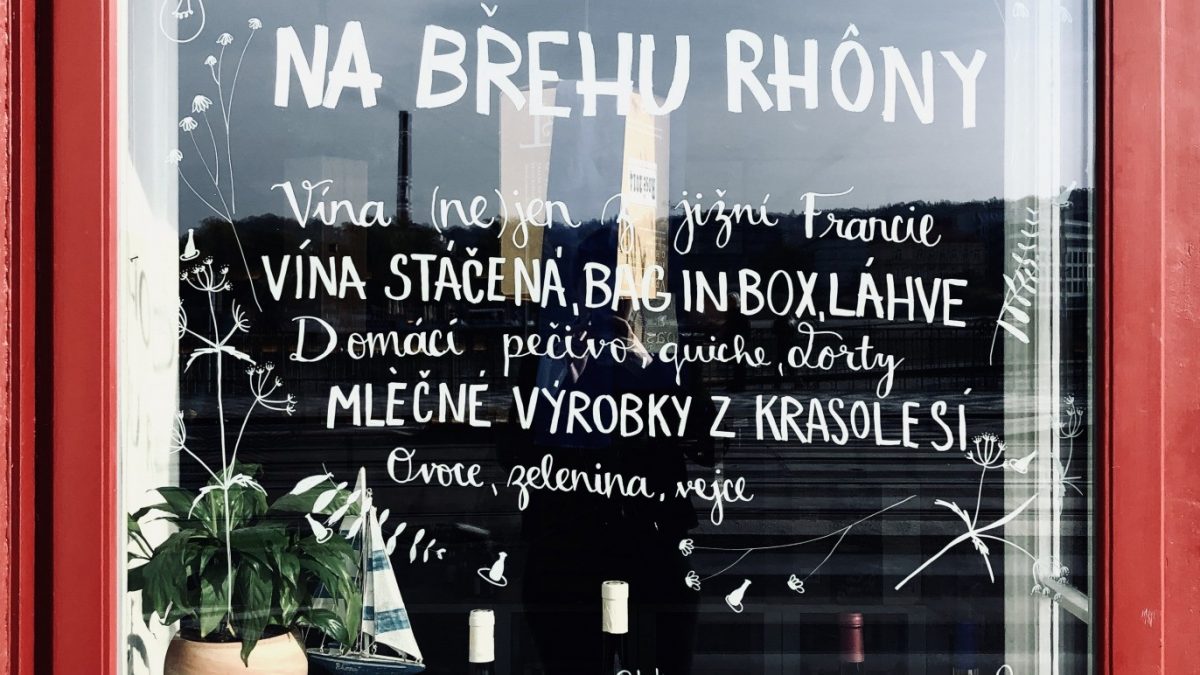 NA BŘEHU RHÔNY
Vína (ne)jen z jižní Francie
VÍNA STÁČENÁ, BAG IN BOX, LÁHVE
Domácí pečivo, quiche, dorty
MLÈČNÉ VÝROBKY Z KRASOLESÍ
Ovoce, zelenina, vejce